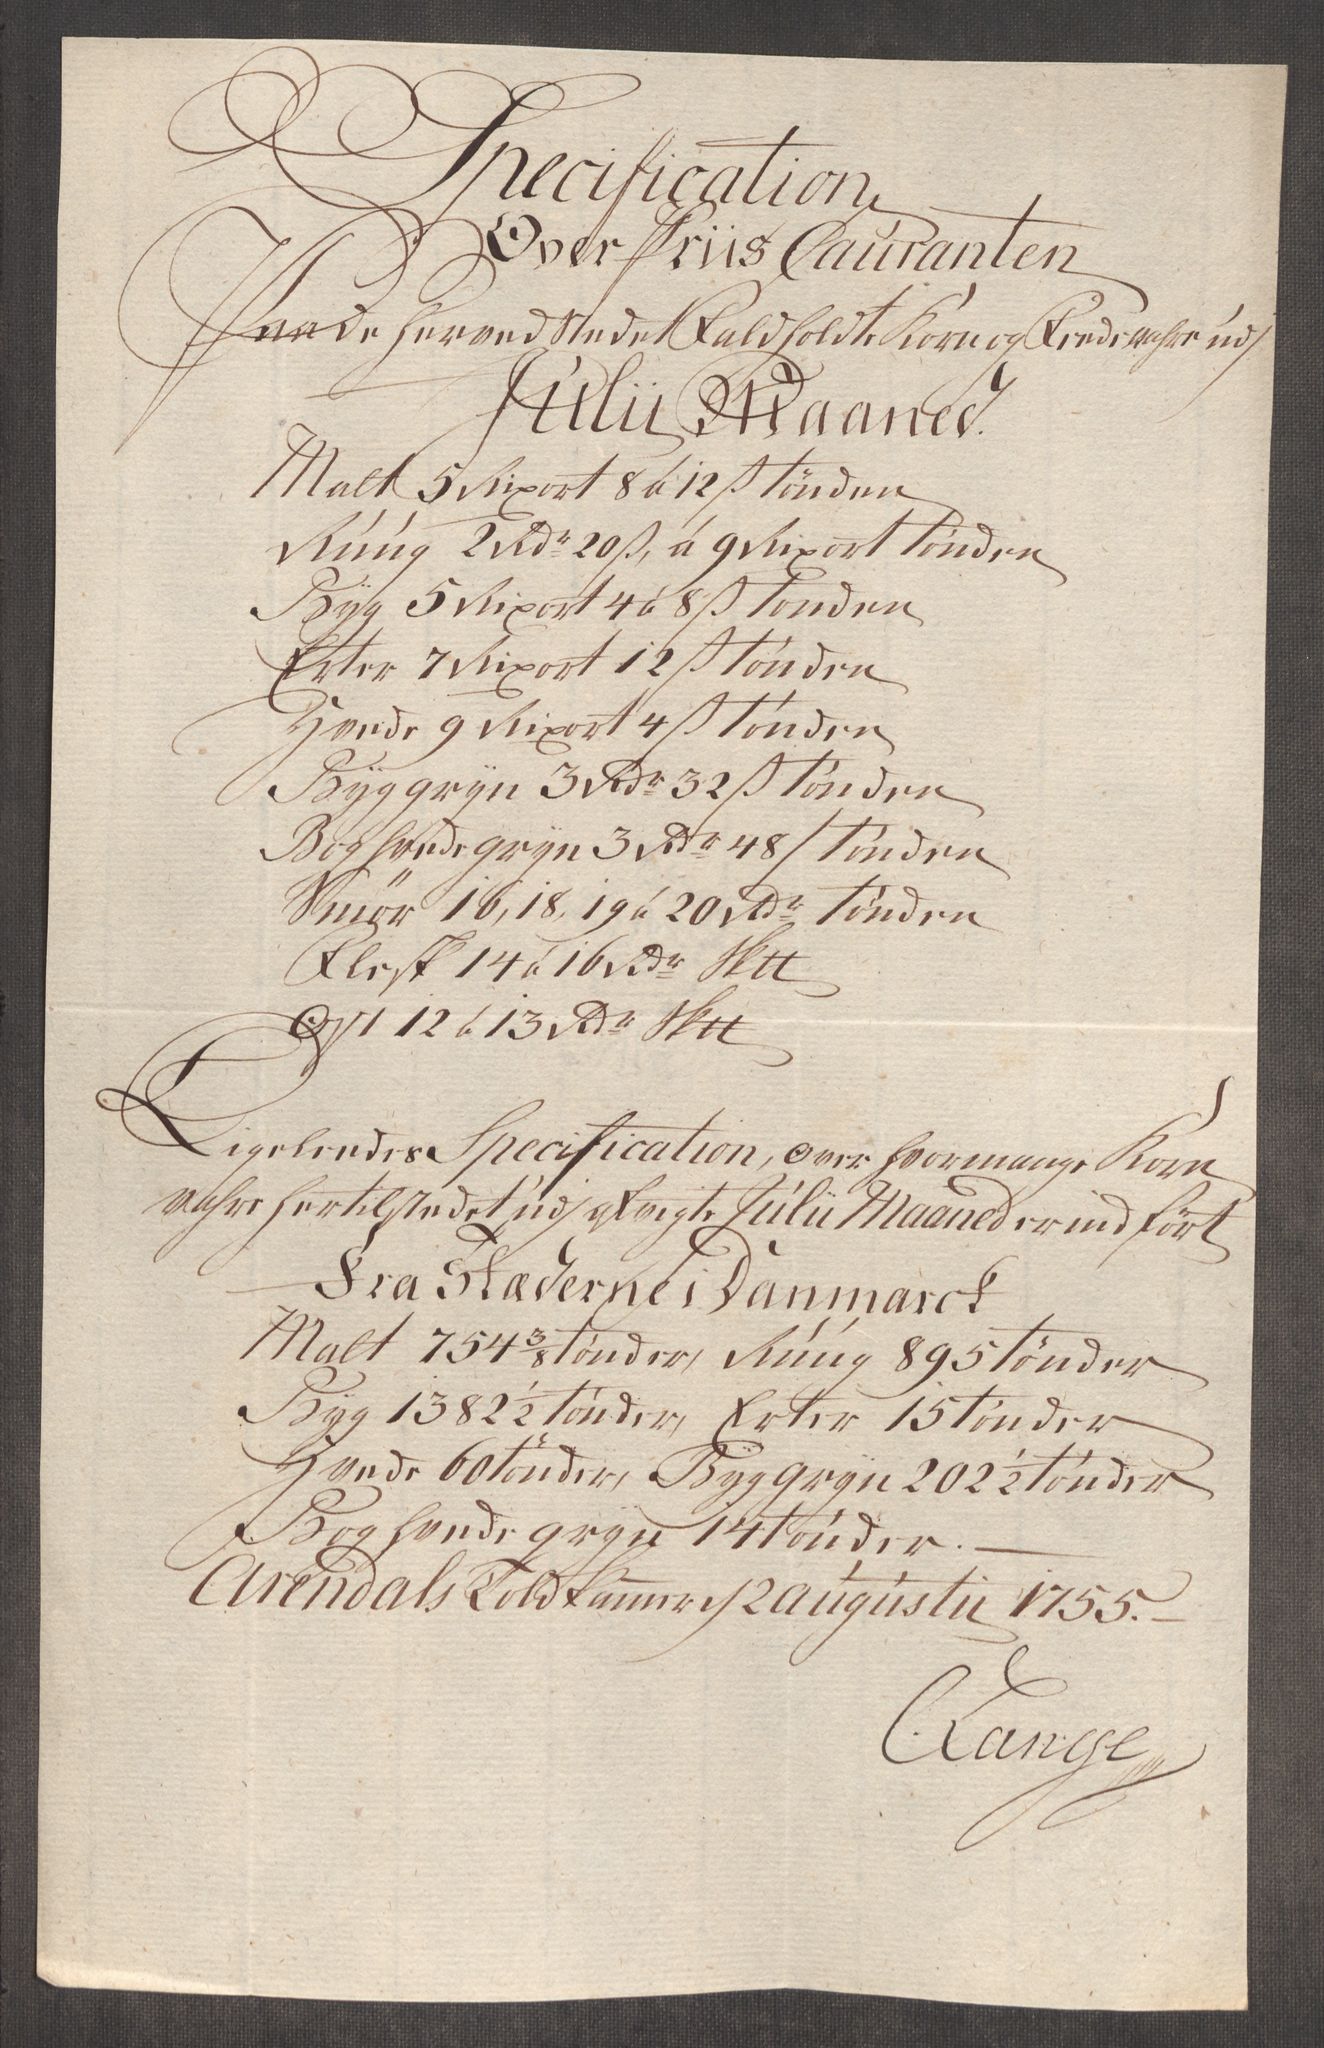 Specification
Over Priis Cauranten
Paa de her ved Stedet Faldholdte Korn og Fede vahre udj
Julii Maaned.
Malt 5 Rixort 8 á 12 ß tönden
Rúúg 2 Rdr 20 ß, á 9 Rixort tönden
Byg 5 Rixort 4 á 8 ß tönden
Erter 7 Rixort 12 ß tönden
Hvede 9 Rixort 4 ß tönden
Byggryn 3 Rdr 32 ß tönden
Boghvede gryn 3 Rdr 48 ß tönden
Smör 16, 18, 19 á 20 Rdr tönden
Flesk 14 á 16 Rdr Sktt
Ost 12 á 13 Rdr Sktt
Ligeleedes Specification, over hvormange Korn
vahre her til Stedet udj Julii Maaned er ind fört
Fra Stæderne i Danmarck
Malt 754 3/8 tönder, Rúúg 895 tönder
Byg 1382 1/2 tönder, Erter 15 tönder
Hvede 60 tönder, Byggryn 202 1/2 tönder
Boghvede gryn 14 tönder.
Arendals Told Cammer d 2 augustii 1755.
CLange